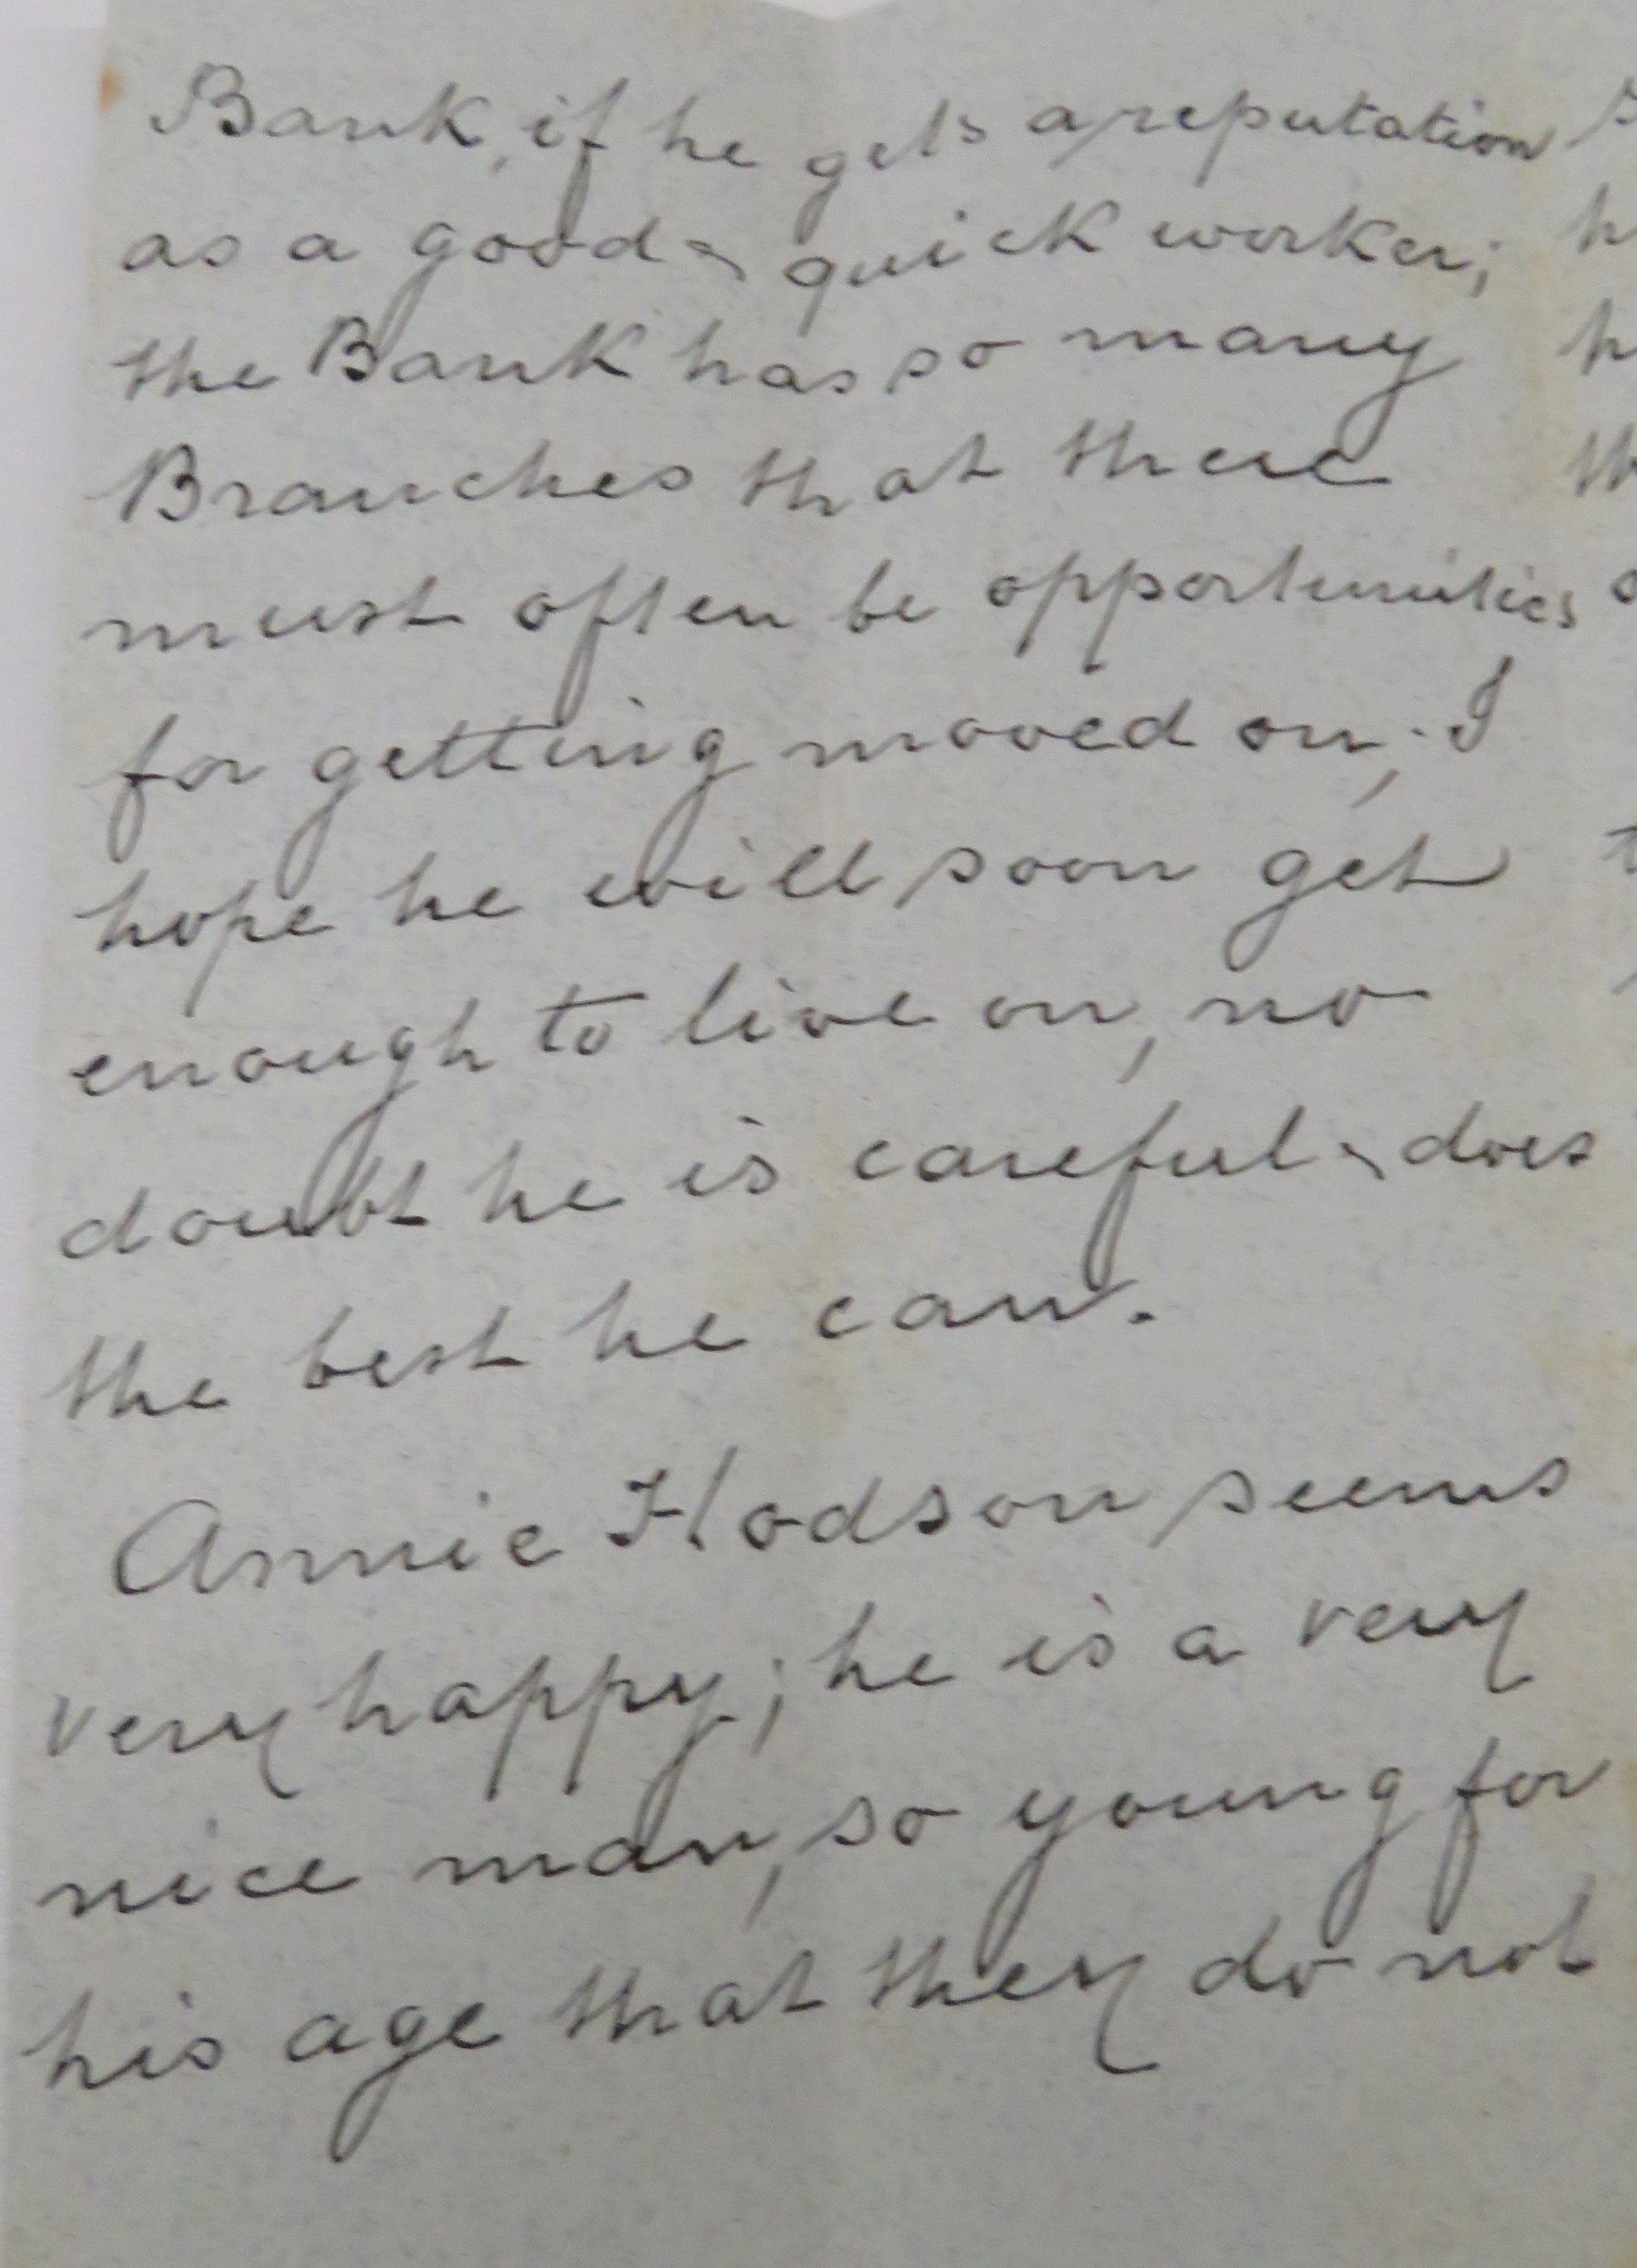 Bank, if he gets a reputation
as a good & quick worker;
the Bank has so many
Branches that there
must often be opportunities
for getting moved on; I
hope he will soon get
enough to live on, no
doubt he is careful & does
the best he can.
Annie Hodson seems
very happy; he is a very
nice man, so young for
his age that they do not